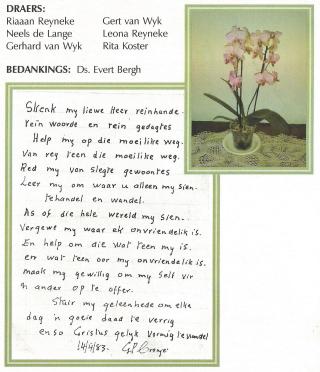 DRAERS:
Riaaan Reyneke Gert van Wyk
Neels de Lange Leona Reyneke
Gerhard van Wyk Rita Koster
BEDANKINGS: Ds. Evert Bergh
Skenk my liewe Heer reinhande
rein woorde en rein gedagtes
Help my op die moeilike weg.
Van reg teen die moeilike weg.
Red my van slegte gewoontes
Leer my om waar u alleen my sien.
te handel en wandel.
As of die hele wereld my sien.
Vergewe my waar ek onvriendelik is.
En help om die wat teen my is.
en wat teen oor my onvriendelik is.
maak my gewillig om my self vir
'n ander op te offer.
Stuir my geleenhede om elke
dag 'n goeie daad te verrig
en so Cristus gelyk vormig te wandel